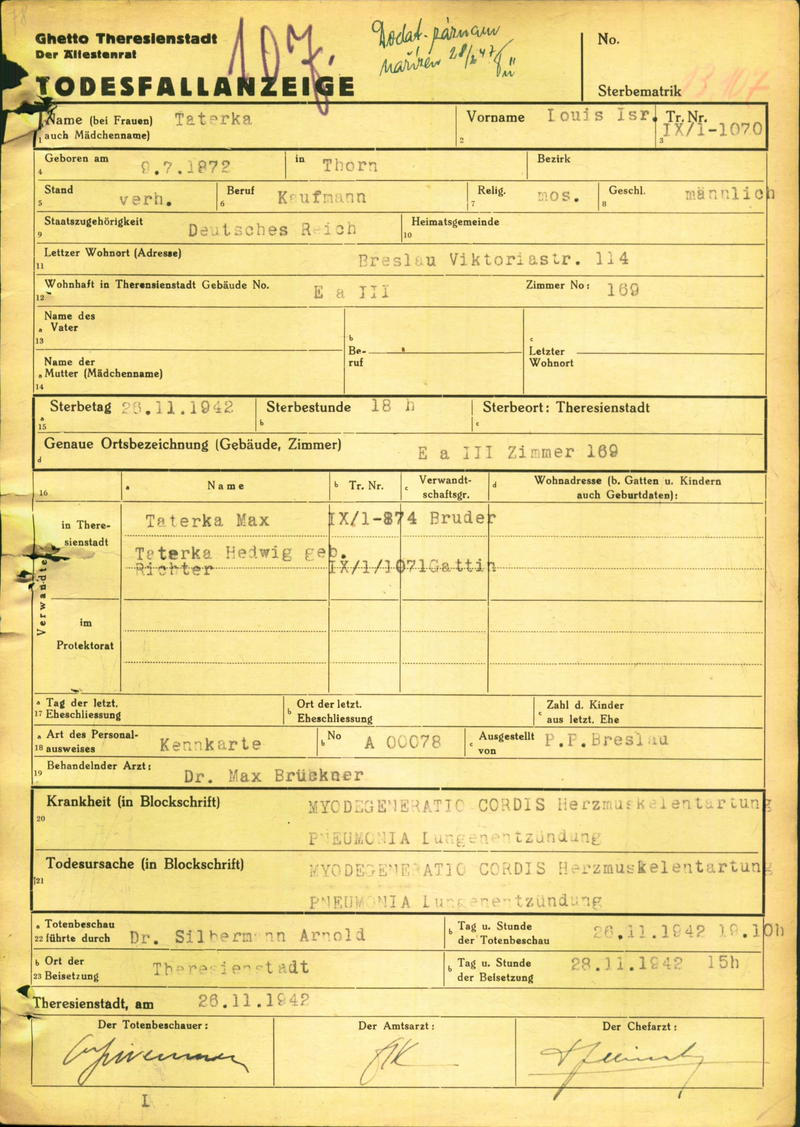 Ghetto Theresienstadt
Der Ältestenrat
TODESFALLANZEIGE
107.
Dodat. párnam
28/2 47
No.
Sterbematrik 13107
Name (bei Frauen) Taterka
auch Mädchenname)
1
Vorname Louis Isr.
2
Tr. Nr.
3 IX/1-1070
Geboren am 9.7.1872
4
in Thorn
Bezirk
Stand verh.
5
Beruf Kaufmann
6
Relig. mos.
7
Geschl. männlich
8
Staatszugehörigkeit Deutsches Reich
9
Heimatsgemeinde
10
Lettzer Wohnort (Adresse) Breslau Viktoriastr. 114
11
Wohnhaft in Therensienstadt Gebäude No. E a III
12
Zimmer No: 169
Name des
a Vater
13
b
Be-
ruf
c
Letzter
Wohnort
Name der
a Mutter (Mädchenname)
14
Sterbetag 26.11.1942
a
15
Sterbestunde 18 h
b
Sterbeort: Theresienstadt
c
Genaue Ortsbezeichnung (Gebäude, Zimmer) E a III Zimmer 169
d
16
a Name
b Tr. Nr.
c Verwandt-
schaftsgr.
d Wohnadresse (b. Gatten u. Kindern
auch Geburtdaten):
Verwandte
in There-
sienstadt
Taterka Max IX/1-874 Bruder
Taterka Hedwig geb.
Richter IX/1/1071 Gattin
im
Protektorat
a Tag der letzt.
17 Eheschliessung
b Ort der letzt.
Eheschliessung
c Zahl d. Kinder
aus letzt. Ehe
a Art des Personal-
18 ausweises Kennkarte
b No A 00078
c Ausgestellt
von P.P.Breslau
Behandelnder Arzt:
19 Dr. Max Brückner
Krankheit (in Blockschrift) MYODEGENERATIO CORDIS Herzmuskelentartung
20
PNEUMONIA Lungenentzündung
Todesursache (in Blockschrift) MYODEGENERATIO CORDIS Herzmuskelentartung
21
PNEUMONIA Lungenentzündung
a Totenbeschau
22 führte durch Dr. Silbermann Arnold
b Tag u. Stunde
der Totenbeschau 26.11.1942 19.10h
b Ort der
23 Beisetzung Theresienstadt
b Tag u. Stunde
der Beisetzung 28.11.1942 15h
Theresienstadt, am 26.11.1942
Der Totenbeschauer:
Der Amtsarzt:
Der Chefarzt:
I